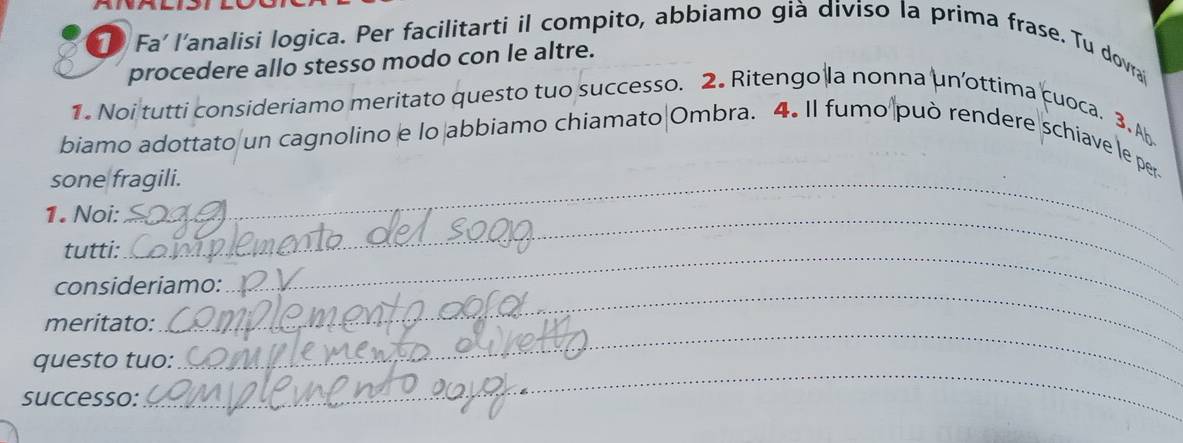 1 Fa' l'analisi logica. Per facilitarti il compito, abbiamo già diviso la prima frase. Tu dovrai
procedere allo stesso modo con le altre.
1. Noi tutti consideriamo meritato questo tuo successo. 2. Ritengo la nonna un'ottima cuoca. 3. Ab-
biamo adottato un cagnolino e lo abbiamo chiamato Ombra. 4. Il fumo può rendere schiave le per-
sone fragili.
1. Noi: sogg
tutti: Complemento del sogg
consideriamo: PV
meritato: complemento
questo tuo: complemento diretto
successo: complemento